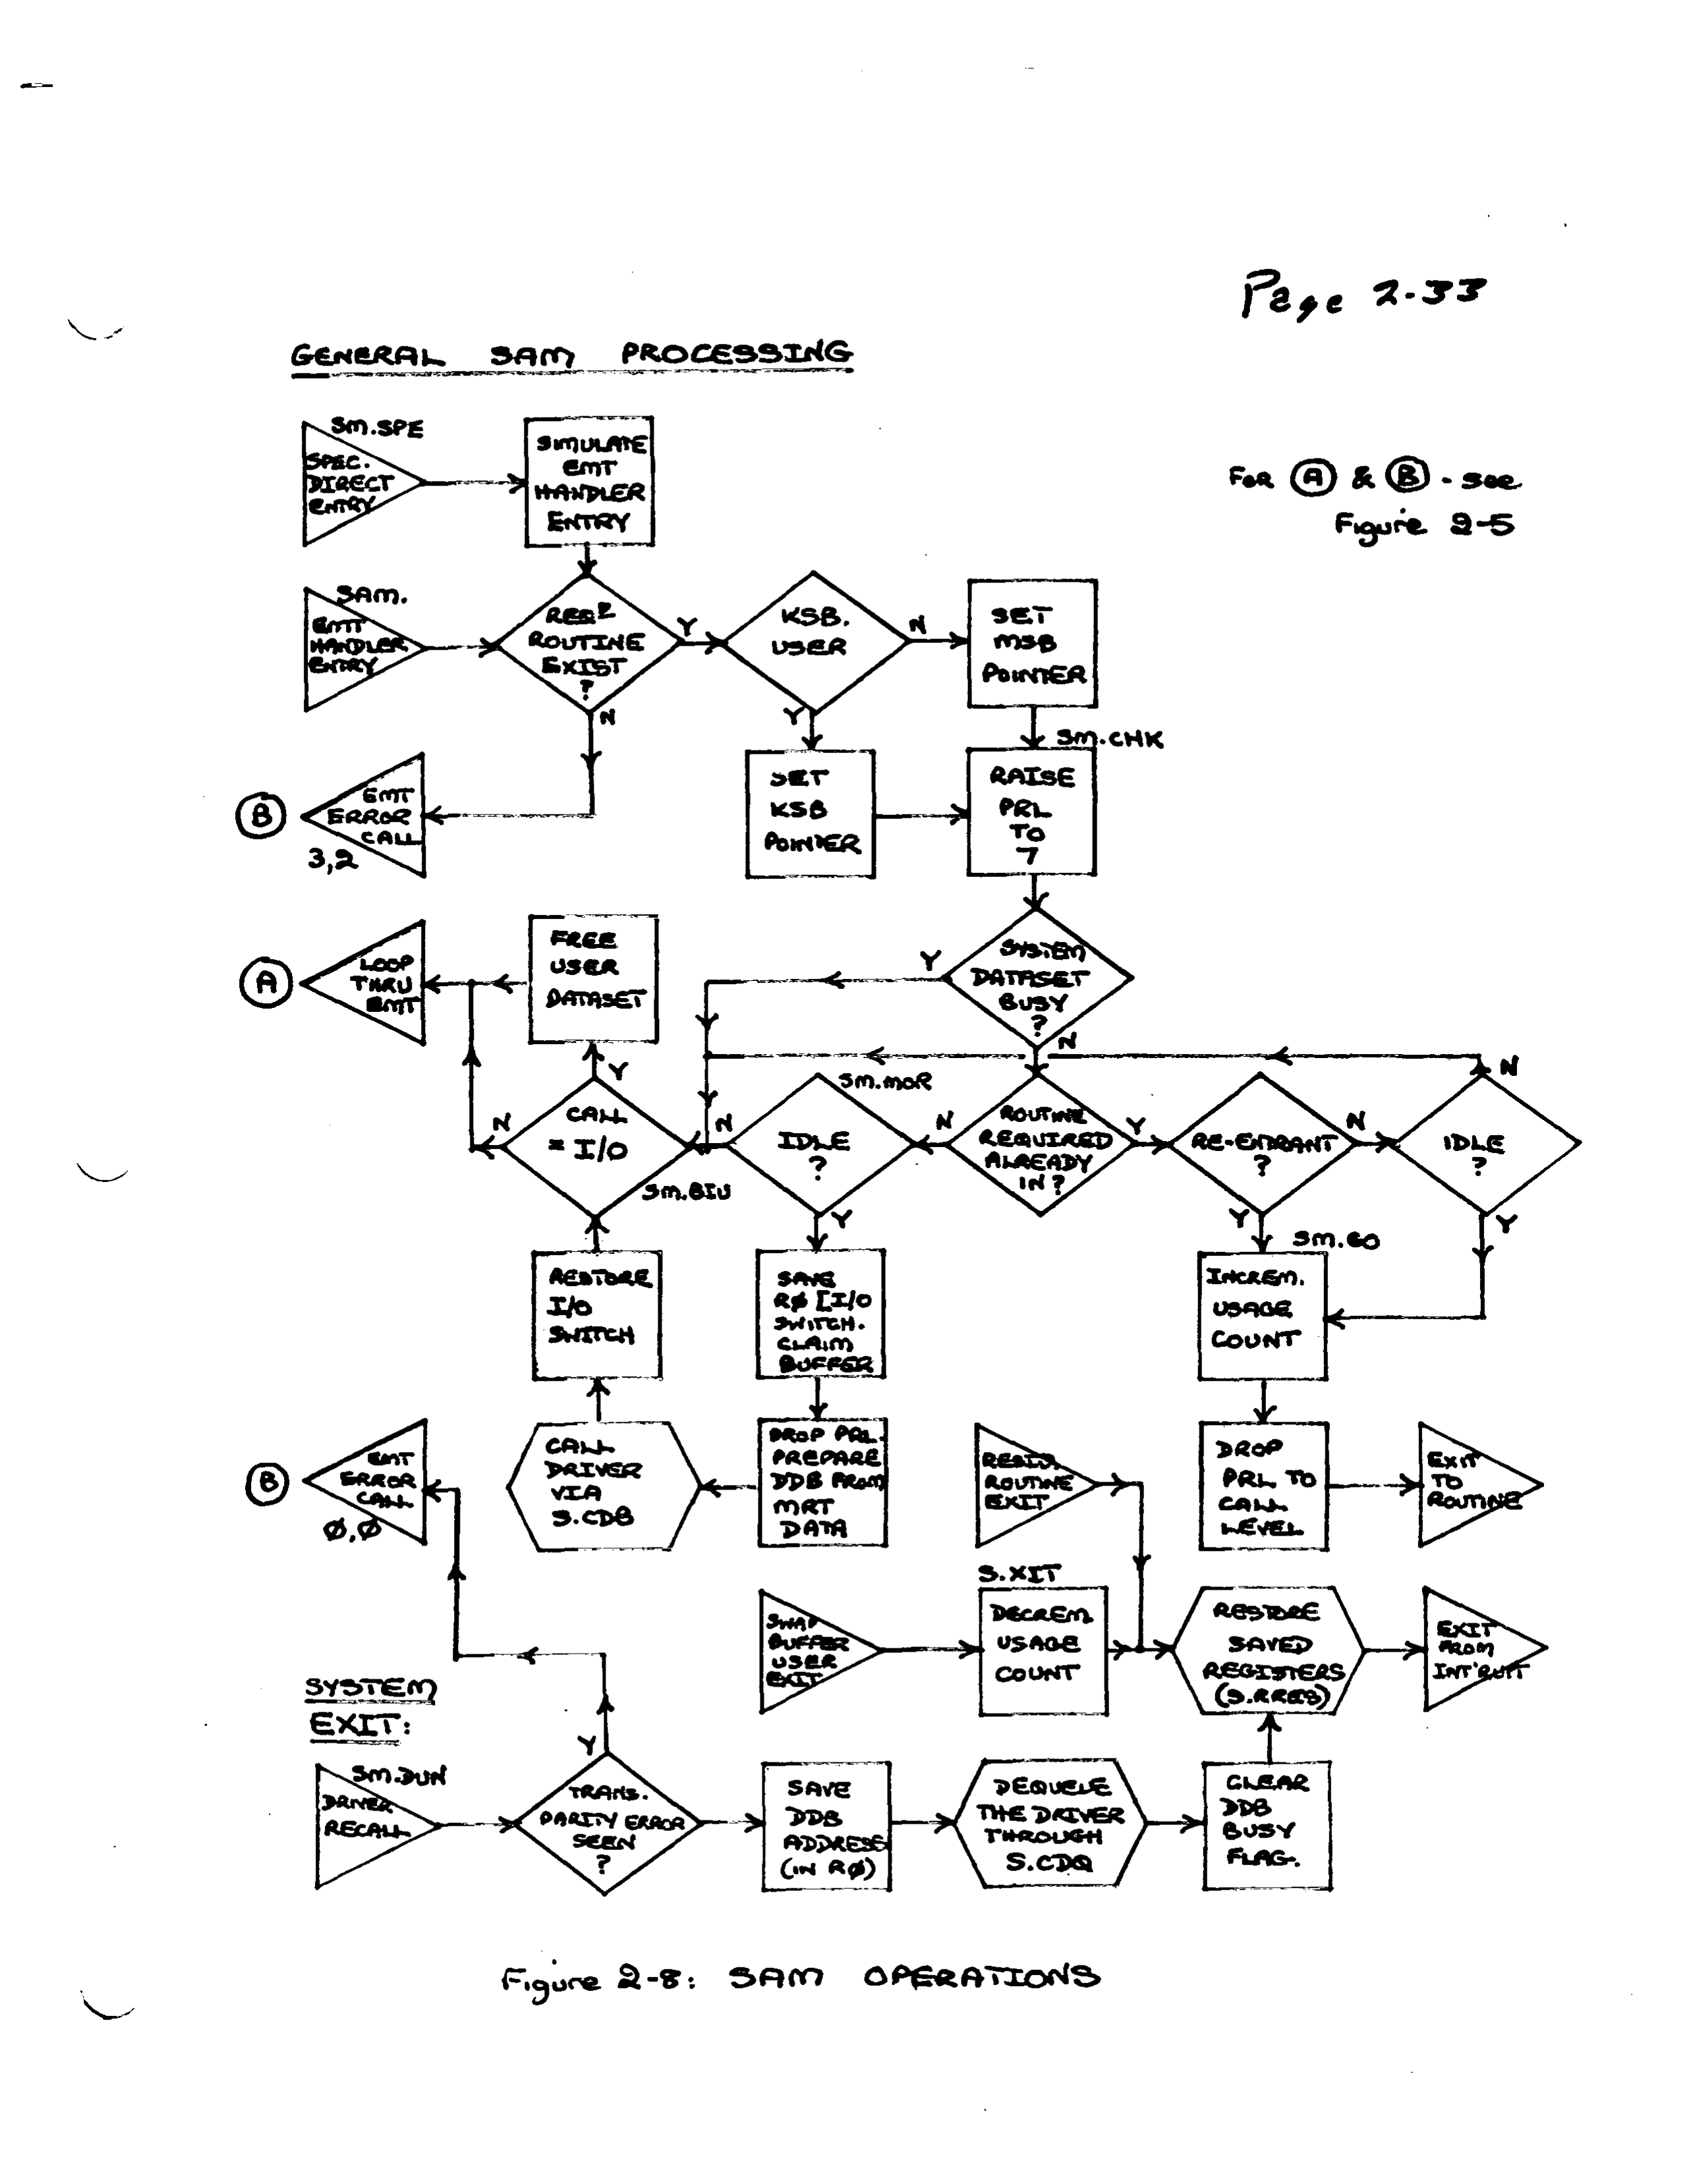 Page 2-33
GENERAL SAM PROCESSING
SM.SPE
SPEC.
DIRECT
ENTRY
SIMULATE
EMT
HANDLER
ENTRY
FOR A & B - see
Figure 2-5
SAM.
EMT
HANDLER
ENTRY
REQD
ROUTINE
EXIST
?
Y
N
KSB.
USER
N
Y
SET
MSB
POINTER
SM.CHK
B
EMT
ERROR
CALL
3,2
SET
KSB
POINTER
RAISE
PRL
TO
7
A
LOOP
THRU
EMT
FREE
USER
DATASET
Y
SYSTEM
DATASET
BUSY
?
N
N
Y
CALL
= I/O
SM.BIU
N
SM.MOR
IDLE
?
Y
N
ROUTINE
REQUIRED
ALREADY
IN?
Y
RE-ENTRANT
?
N
Y
N
IDLE
?
Y
SM.GO
RESTORE
I/O
SWITCH
SAVE
RØ [I/O
SWITCH.
CLAIM
BUFFER
INCREM.
USAGE
COUNT
B
EMT
ERROR
CALL
Ø,Ø
CALL
DRIVER
VIA
S.CDB
DROP PRL.
PREPARE
DDB FROM
MRT
DATA
RESID.
ROUTINE
EXIT
DROP
PRL TO
CALL
LEVEL
EXIT
TO
ROUTINE
SWAP
BUFFER
USER
EXIT
S.XIT
DECREM.
USAGE
COUNT
RESTORE
SAVED
REGISTERS
(S.RRES)
EXIT
FROM
INT'RUPT
SYSTEM
EXIT:
SM.DUN
DRIVER
RECALL
Y
TRANS.
PARITY ERROR
SEEN
?
SAVE
DDB
ADDRESS
(IN RØ)
DEQUEUE
THE DRIVER
THROUGH
S.CDQ
CLEAR
DDB
BUSY
FLAG.
Figure 2-8: SAM OPERATIONS